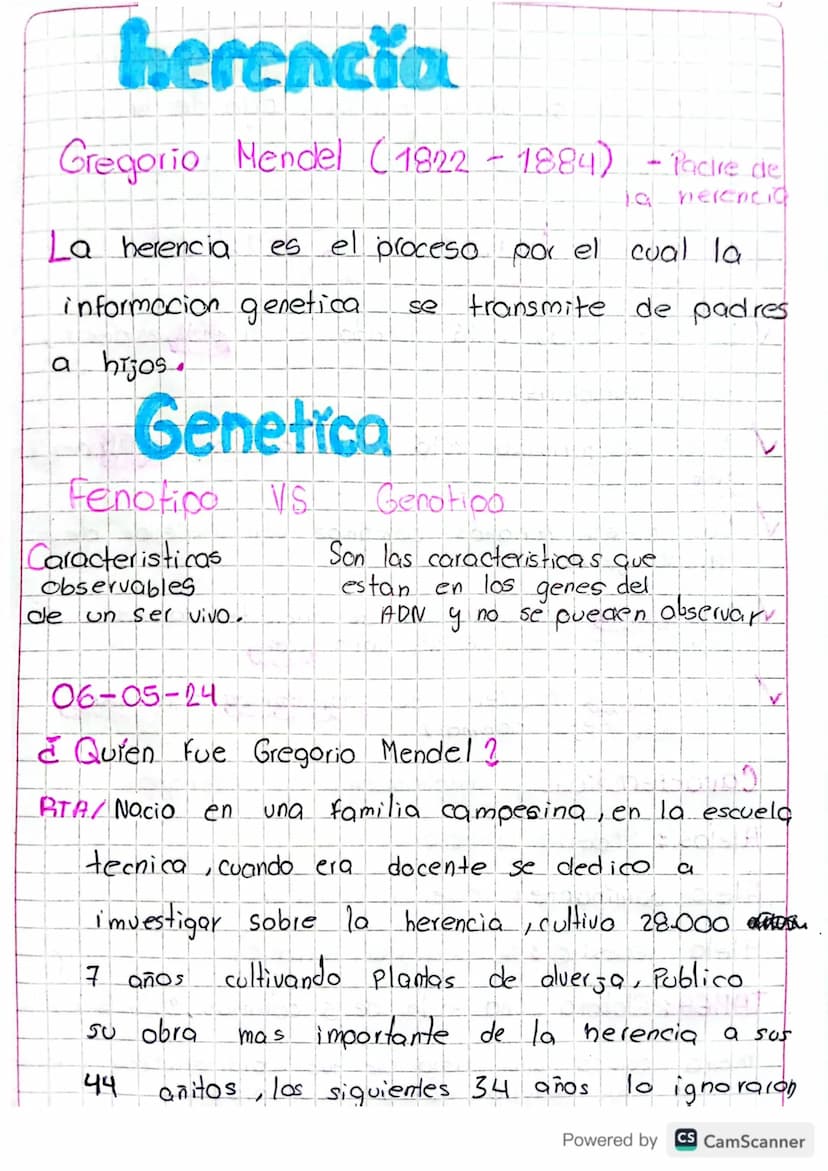 herencia
Gregorio Mendel (1822 - 1884) - Padre de
la herencia
La herencia es el proceso por el cual la
informacion genetica se transmite de padres
a hijos.
Genetica
Fenotipo VS Genotipo
Caracteristicas
observables
de un ser vivo.
Son las caracteristicas que
estan en los genes del
ADN y no se pueden observar
06-05-24
¿Quien fue Gregorio Mendel?
RTA/ Nacio en una familia campesina, en la escuela
tecnica, cuando era docente se dedico a
imvestigar sobre la herencia, cultivo 28.000
7 años cultivando plantas de alverja, Publico
su obra mas importante de la herencia a sus
44 añitos, los siguientes 34 años lo ignoraron
Powered by CS CamScanner